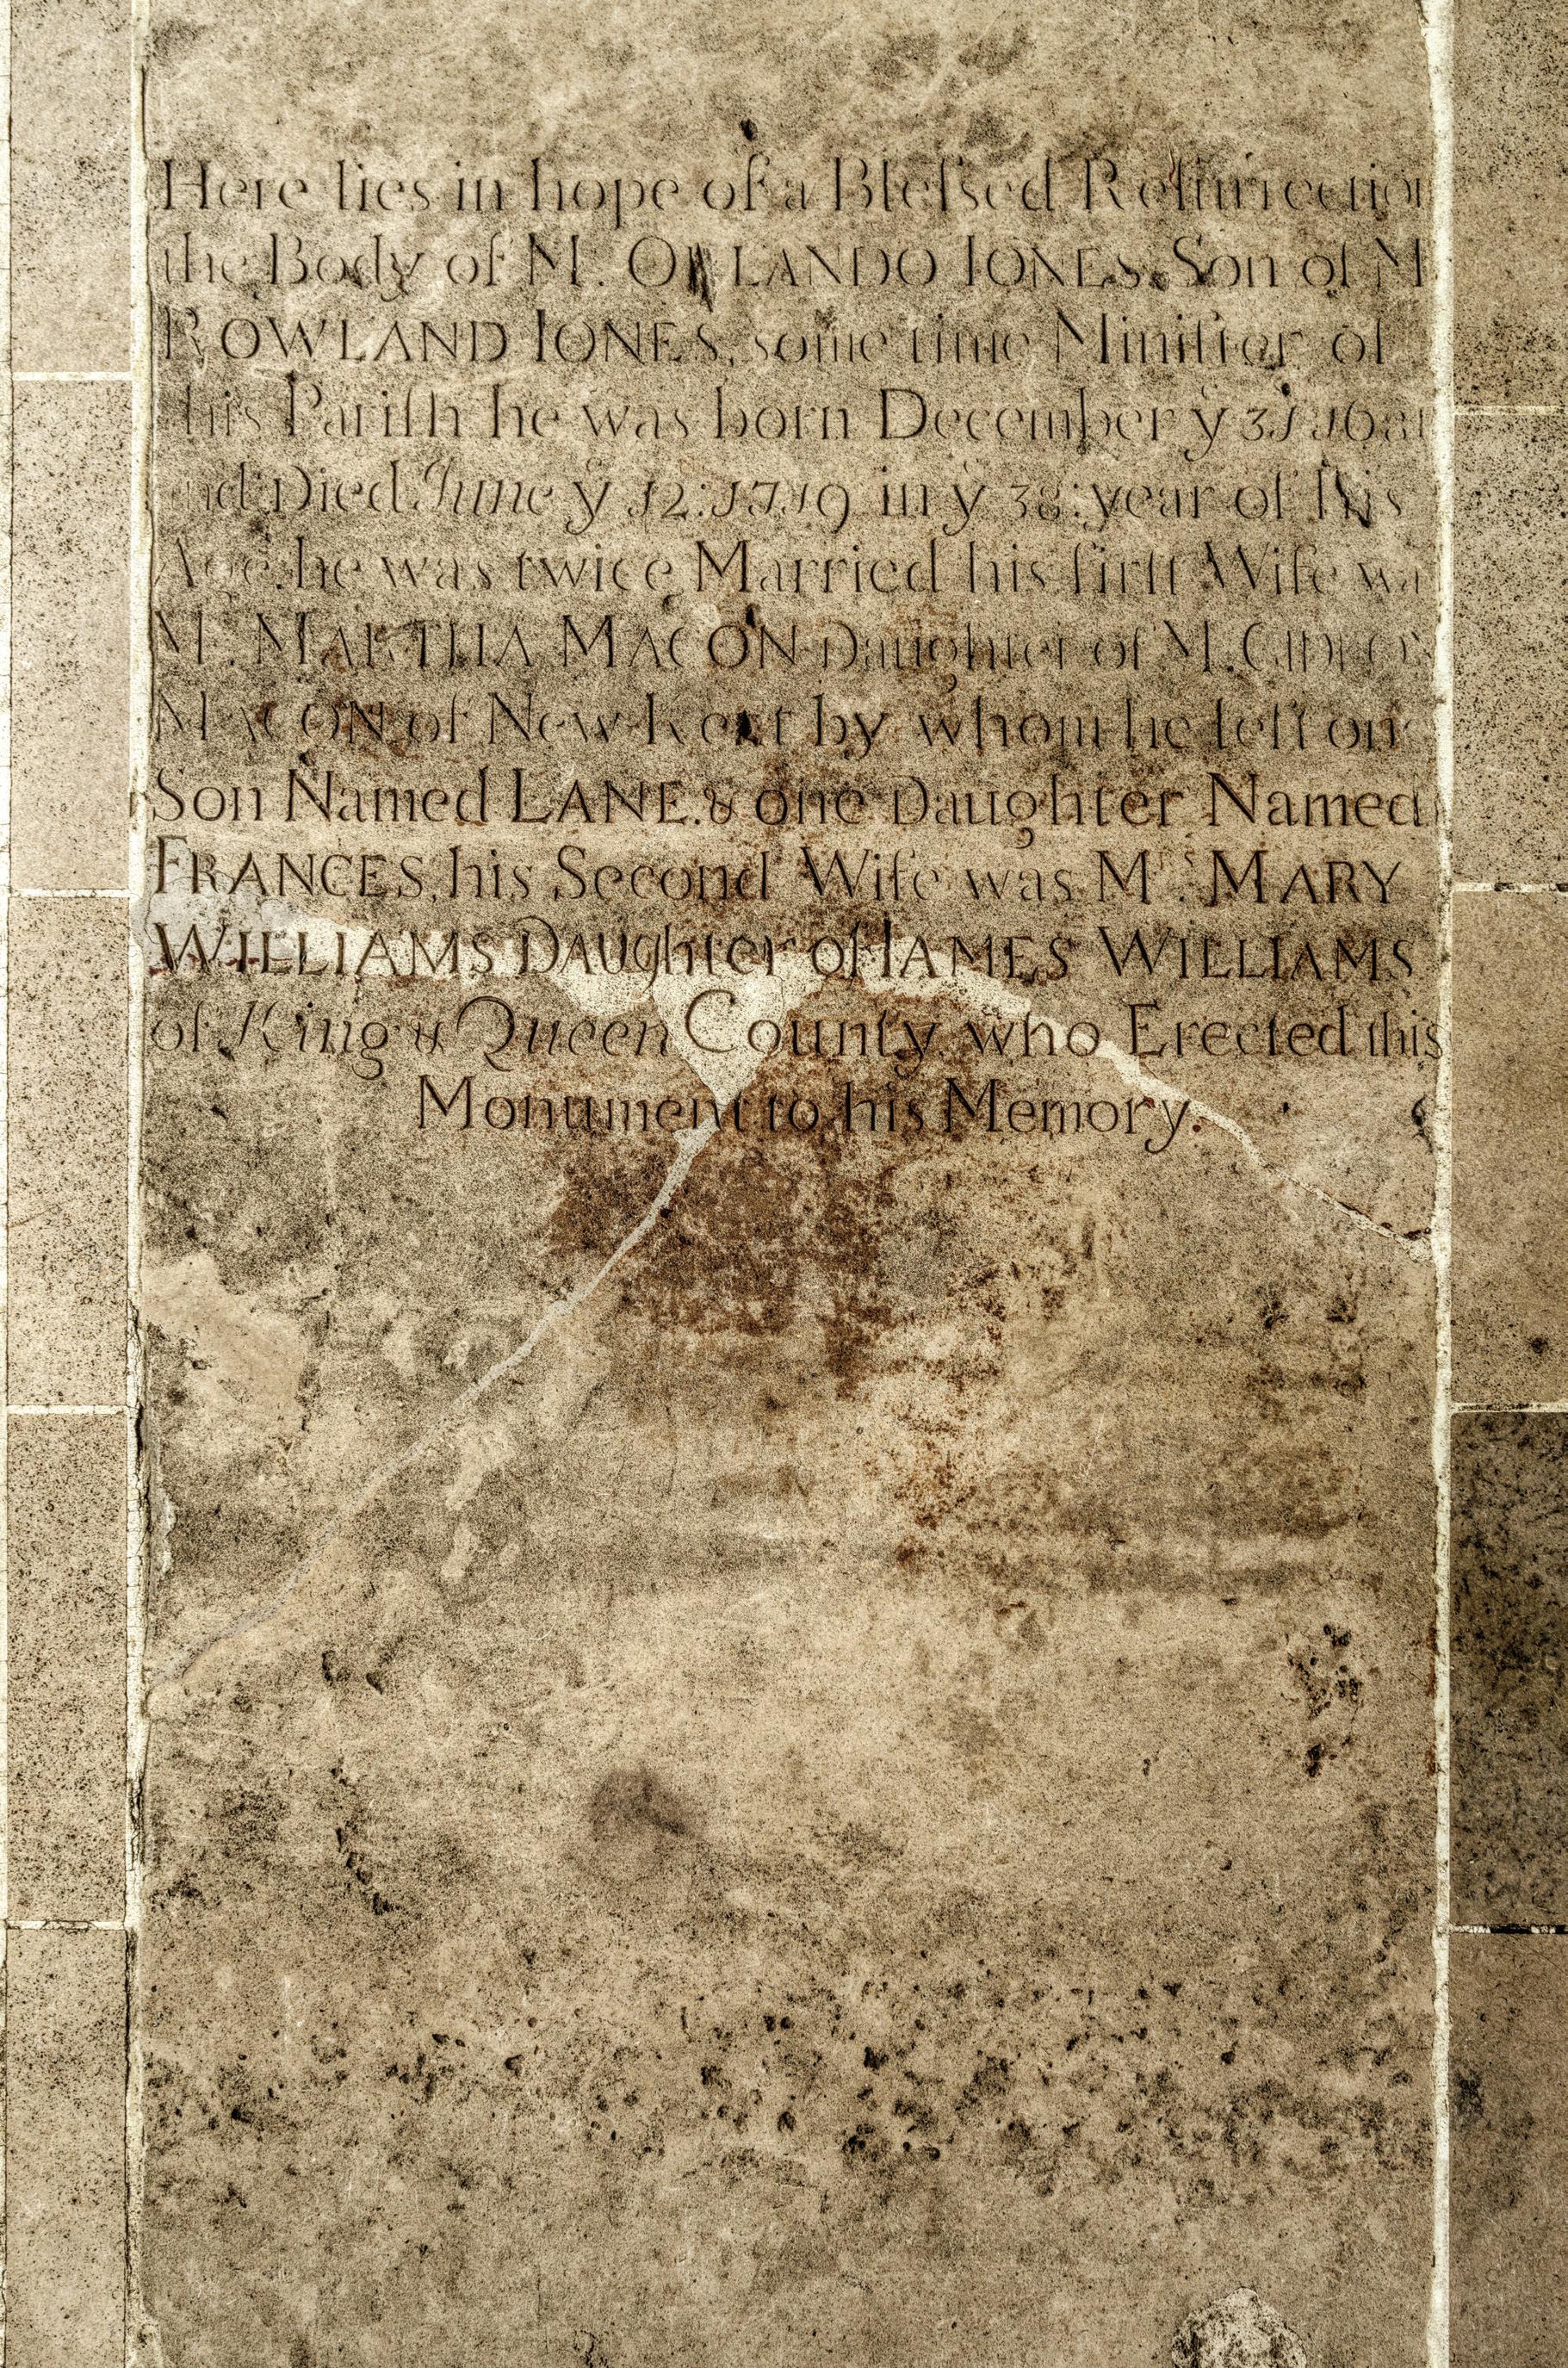 Here lies in hope of a Bleſsed Reſurrection
the Body of M. ORLANDO IONES, Son of M
ROWLAND IONES, some time Miniſter of
his Pariſh he was born December ẙ 31 1681
nd Died June ẙ 12: 1719 in ẙ 38: year of his
Age. he was twice Married his firſt Wife wa
M. MARTHA MACON Daughter of M. GIDEON
MACON of New-Kent by whom he left one
Son Named LANE. & one Daughter Named
FRANCES, his Second Wife was Mrs. MARY
WILLIAMS Daughter of IAMES WILLIAMS
of King & Queen County who Erected this
Monument to his Memory.